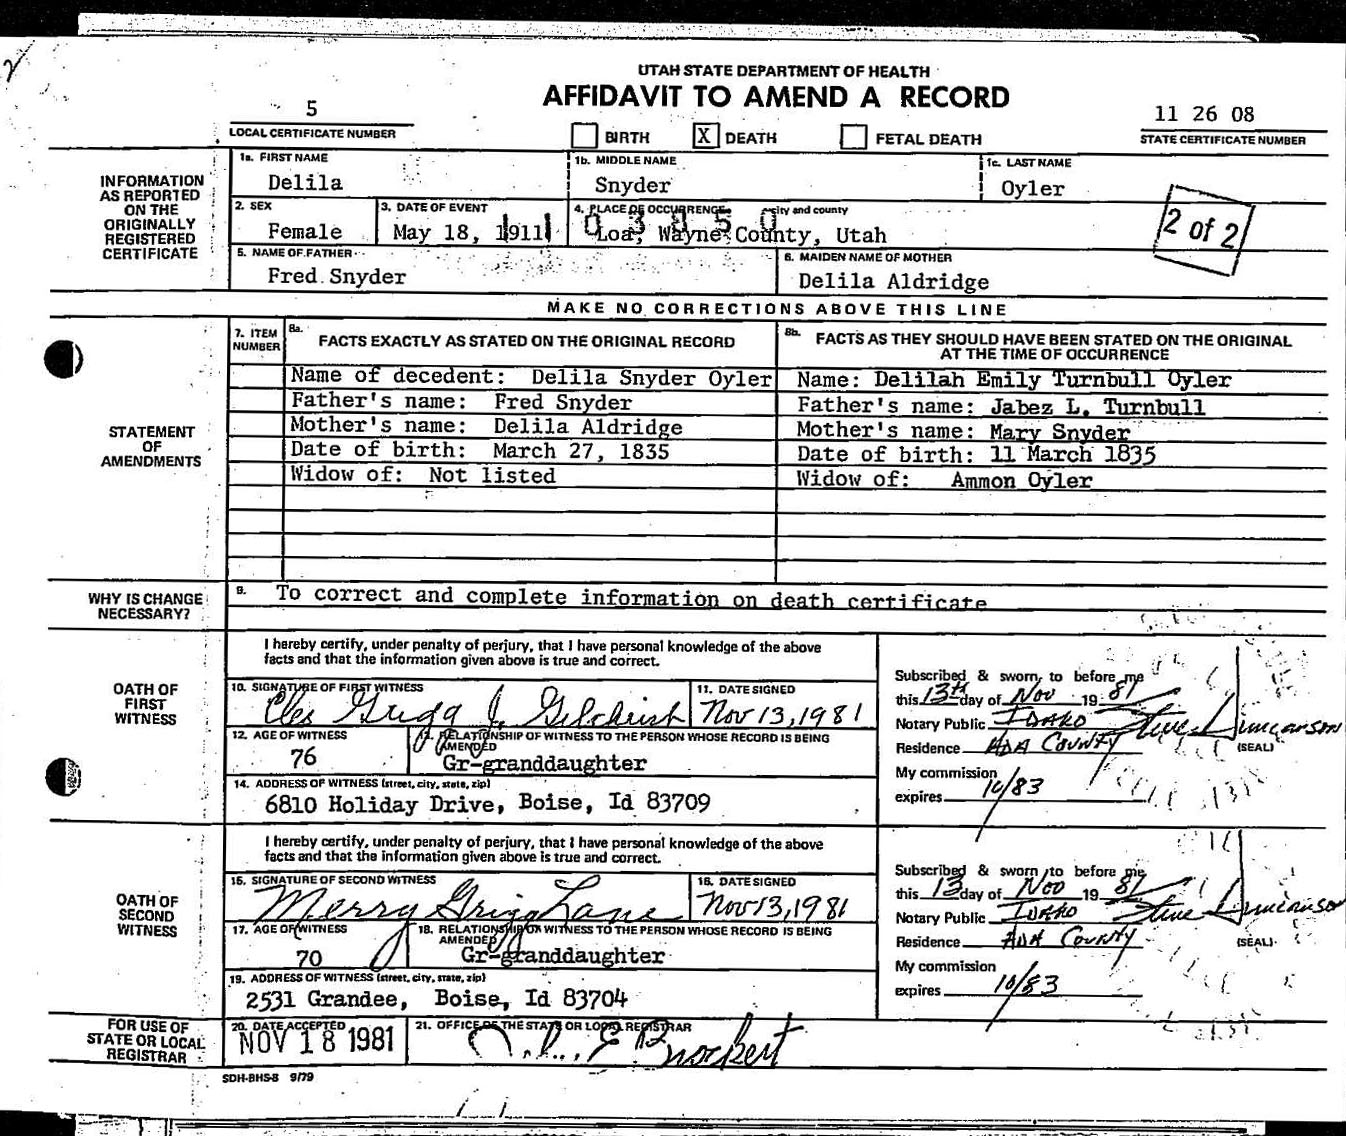 2
UTAH STATE DEPARTMENT OF HEALTH
AFFIDAVIT TO AMEND A RECORD
5
LOCAL CERTIFICATE NUMBER
BIRTH X DEATH FETAL DEATH
11 26 08
STATE CERTIFICATE NUMBER
INFORMATION AS REPORTED ON THE ORIGINALLY REGISTERED CERTIFICATE
1a. FIRST NAME 1b. MIDDLE NAME 1c. LAST NAME
Delila Snyder Oyler
2. SEX 3. DATE OF EVENT 4. PLACE OF OCCURRENCE city and county
Female May 18, 1911 Loa, Wayne County, Utah
03850
2 of 2
5. NAME OF FATHER 6. MAIDEN NAME OF MOTHER
Fred Snyder Delila Aldridge
MAKE NO CORRECTIONS ABOVE THIS LINE
STATEMENT OF AMENDMENTS
7. ITEM NUMBER 8a. FACTS EXACTLY AS STATED ON THE ORIGINAL RECORD 8b. FACTS AS THEY SHOULD HAVE BEEN STATED ON THE ORIGINAL AT THE TIME OF OCCURRENCE
Name of decedent: Delila Snyder Oyler Name: Delilah Emily Turnbull Oyler
Father's name: Fred Snyder Father's name: Jabez L. Turnbull
Mother's name: Delila Aldridge Mother's name: Mary Snyder
Date of birth: March 27, 1835 Date of birth: 11 March 1835
Widow of: Not listed Widow of: Ammon Oyler
WHY IS CHANGE NECESSARY?
9. To correct and complete information on death certificate
OATH OF FIRST WITNESS
I hereby certify, under penalty of perjury, that I have personal knowledge of the above
facts and that the information given above is true and correct.
10. SIGNATURE OF FIRST WITNESS 11. DATE SIGNED
Grigg J. Gilchrist Nov 13, 1981
12. AGE OF WITNESS RELATIONSHIP OF WITNESS TO THE PERSON WHOSE RECORD IS BEING AMENDED
76 Gr-granddaughter
14. ADDRESS OF WITNESS (street, city, state, zip)
6810 Holiday Drive, Boise, Id 83709
Subscribed & sworn to before me
this 13th day of Nov 19 81
Notary Public IDAHO
Residence ADA COUNTY (SEAL)
My commission
expires 10/83
OATH OF SECOND WITNESS
I hereby certify, under penalty of perjury, that I have personal knowledge of the above
facts and that the information given above is true and correct.
15. SIGNATURE OF SECOND WITNESS 16. DATE SIGNED
Merry Grigg Lane Nov 13, 1981
17. AGE OF WITNESS 18. RELATIONSHIP OF WITNESS TO THE PERSON WHOSE RECORD IS BEING AMENDED
70 Gr-granddaughter
19. ADDRESS OF WITNESS (street, city, state, zip)
2531 Grandee, Boise, Id 83704
Subscribed & sworn to before me
this 13 day of Nov 19 81
Notary Public IDAHO
Residence ADA COUNTY (SEAL)
My commission
expires 10/83
FOR USE OF STATE OR LOCAL REGISTRAR
20. DATE ACCEPTED 21. OFFICE OF THE STATE OR LOCAL REGISTRAR
NOV 18 1981 E Brockert
SDH-BHS-8 9/79